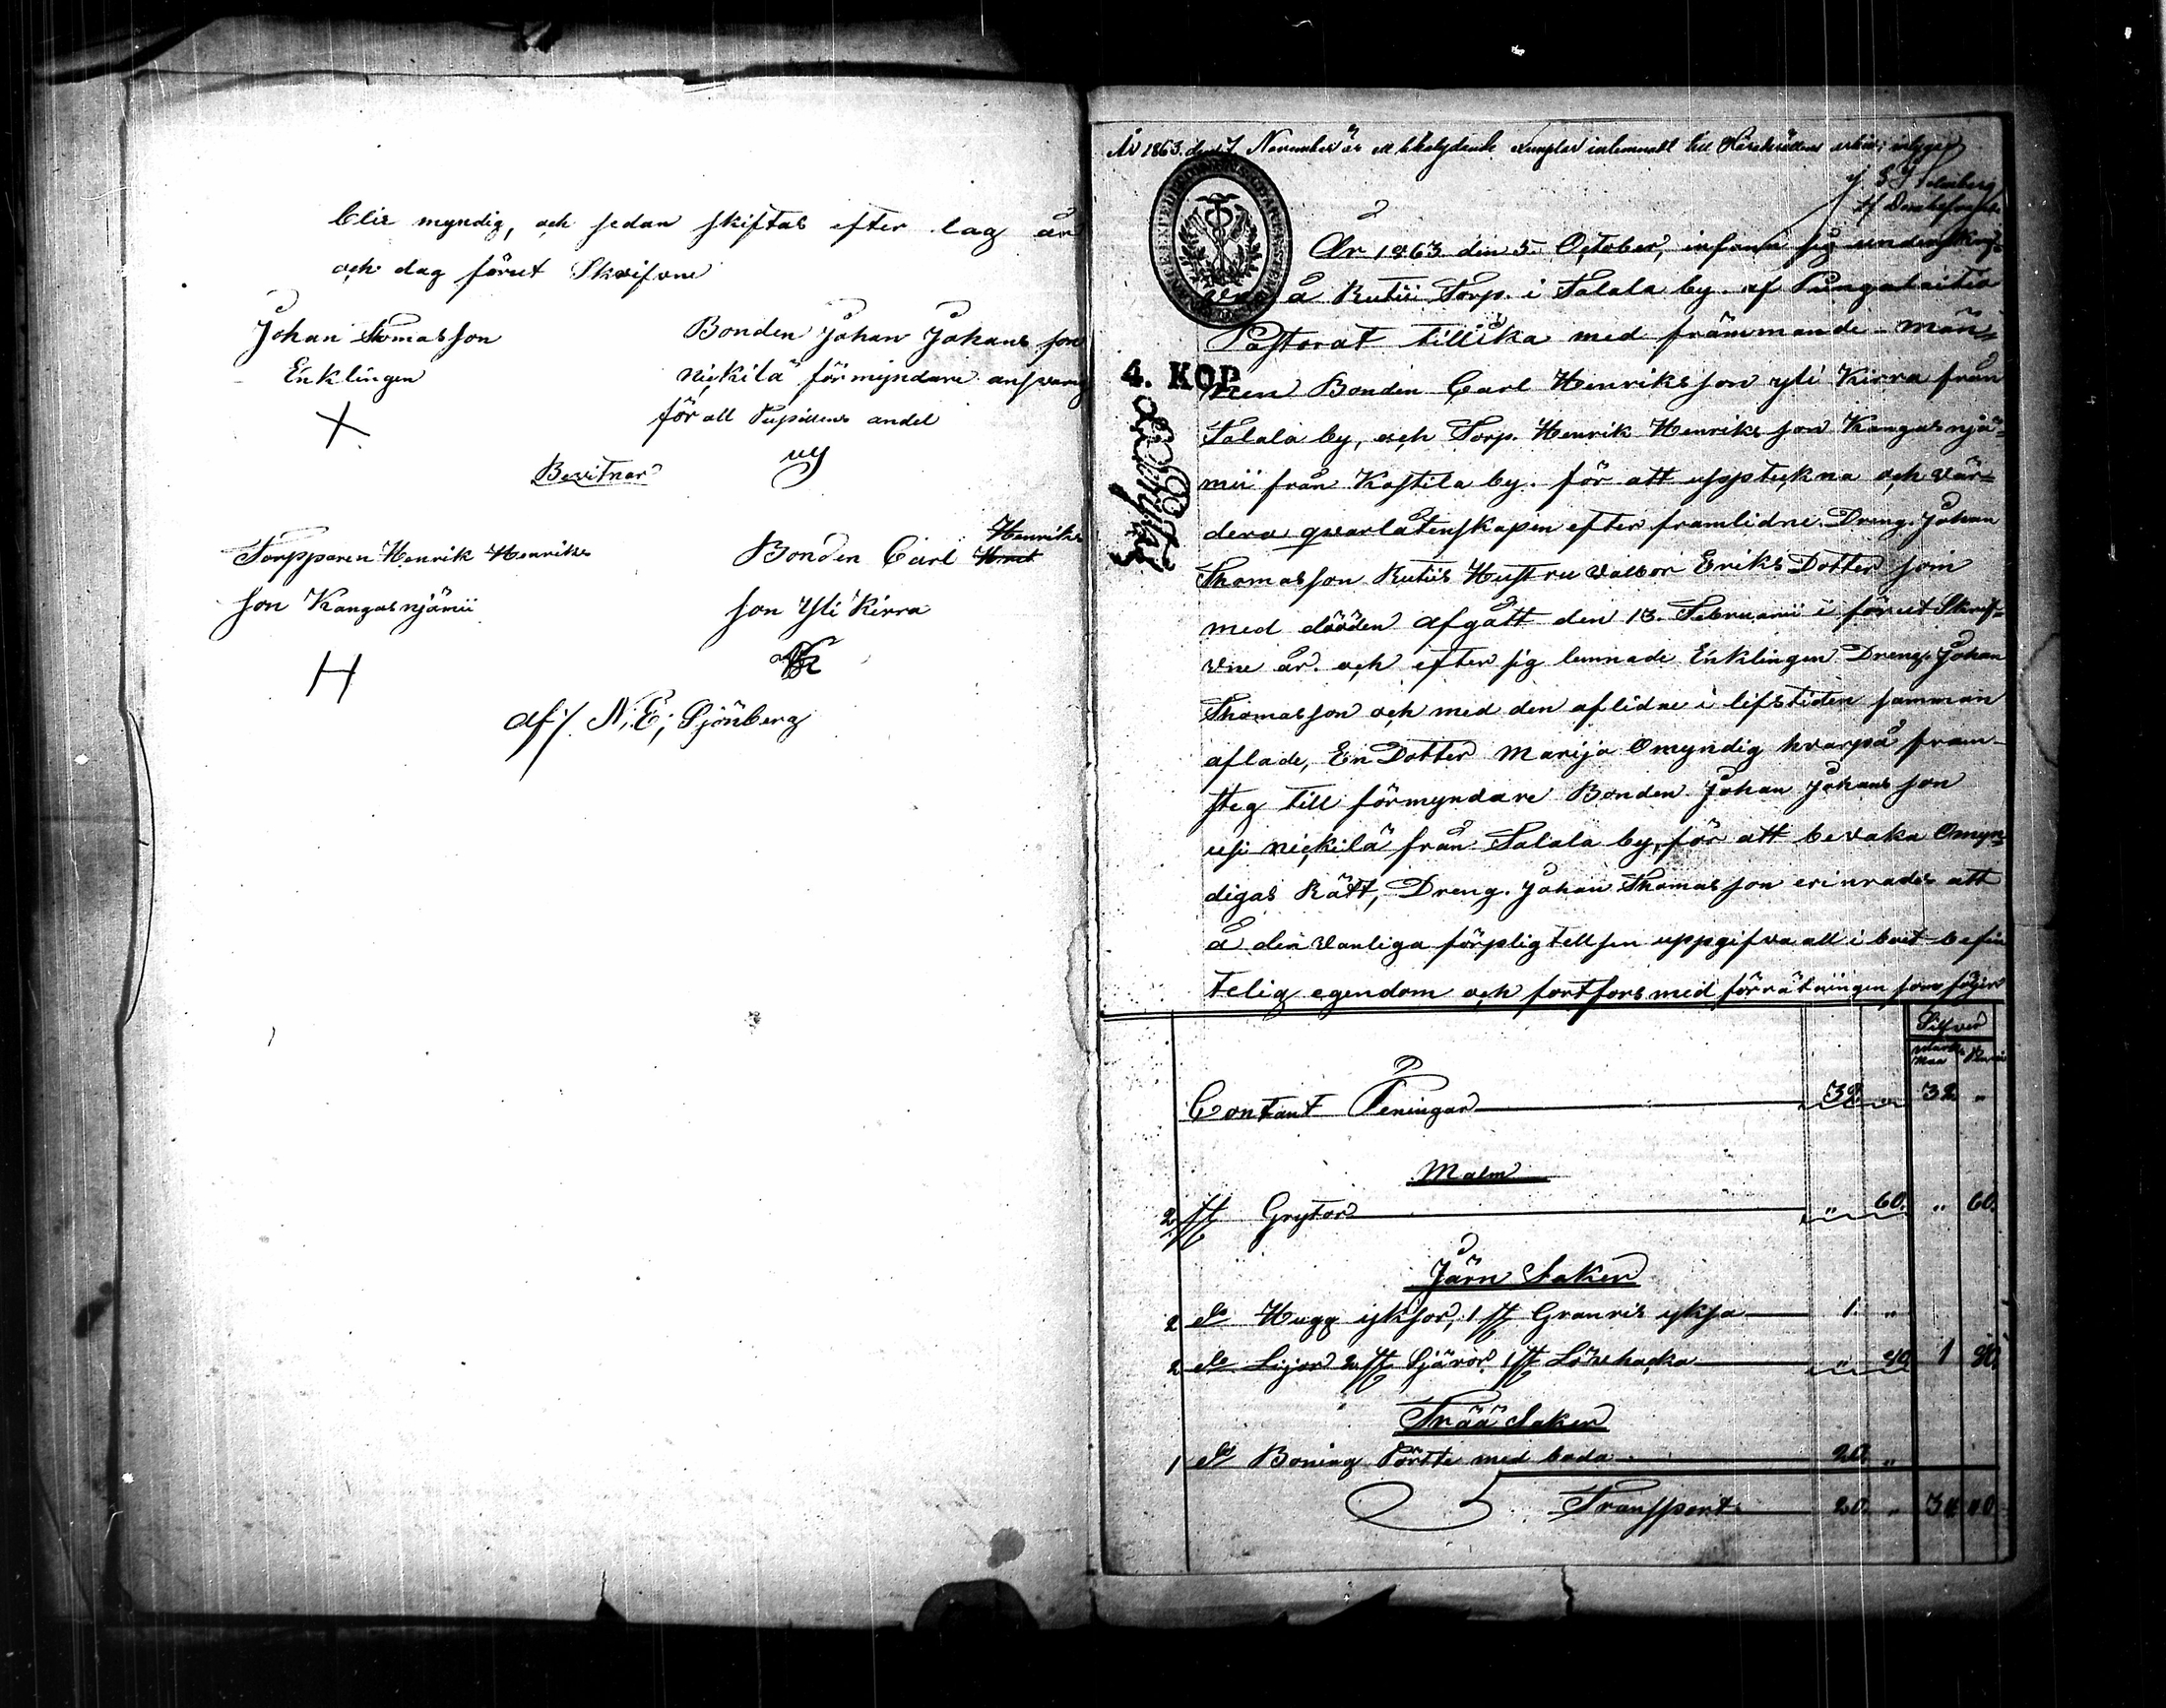 blir myndig, och sedan skiftas efter lag år
och dag förut Skrifvne
Johan Thomasson
Enklingen
X
Bonden Johan Johansson
nickilä förmyndare answarig
för all Pupillens andel
Bevitnar
Torpparen Henrik Henriks
son Kangasnjämii
H
Henriks
Bonden Carl
son Yli Kirra
af N. E; Sjönberg
År 1863. den 7 November är ett likalydande exemplar inlemnadt till Häradsrättens arkiv; intygar
År 1863 den 5. October, infann sig underskrif-
vne å Rutii Torp. i Salala by. af Pungalaitio
Pastorat tillika med främmande män-
4. KOP.
nen Bonden Carl Henriksson yli Kirra från
Salala by, och Torp. Henrik Henriksson Kangasnjä-
mii från Kostila by. för att uppteckna och vär-
dera qvarlåtenskapen efter framlidne Dreng. Johan
Thomasson Rutiis Hustru Valbor Eriks Dotter som
med dööden afgått den 13. Februarii i förut Skrif-
vne år. och efter sig lemnade Enklingen Dreng. Johan
Thomasson och med den aflidne i lifstiden samman
aflade, En Dotter Marija Omyndig hvarpå fram-
steg till förmyndare Bonden Johan Johansson
usi nickilä från Salala by, för att bevaka Omyn-
digas Rätt, Dreng. Johan Thomasson erinrades att
å den vanliga förpligtellsen uppgifva all i boet befin
telig egendom och fortfors med förrätningen som föjer
Silfver
Contant Peningar 32 " 32 "
Malm
2 st Grytor " 60. " 60.
Järn Saker
2 st Hugg yksor, 1 st Granris yksa 1. "
2 st Lijor 2 st Sjäror 1 st Löv hacka " 40 1 40.
Trää Saker
1 st Boning Pörtte med boda 20. "
Transport 20. " 34